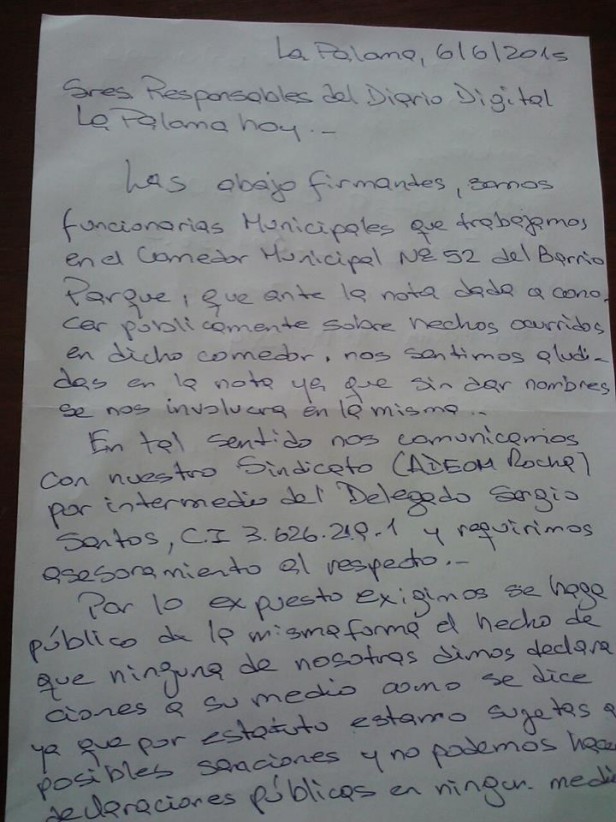 La Paloma, 6/6/2015
Sres Responsables del Diario Digital
La Paloma hoy.--
Las abajo firmantes, somos
funcionarias Municipales que trabajamos
en el Comedor Municipal Nº 52 del Barrio
Parque, que ante la nota dada a cono-
cer públicamente sobre hechos ocurridos
en dicho comedor, nos sentimos aludi-
das en la nota ya que sin dar nombres
se nos involucra en la misma.-
En tal sentido nos comunicamos
con nuestro Sindicato (ADEOM Rocha)
por intermedio del Delegado Sergio
Santos, C.I 3.626.219.1 y requirimos
asesoramiento al respecto.-
Por lo expuesto exigimos se haga
público de la misma forma el hecho de
que ninguna de nosotras dimos declara
ciones a su medio como se dice
ya que por estatuto estamo sujetas a
posibles sanciones y no podemos hacer
declaraciones públicas en ningun medio